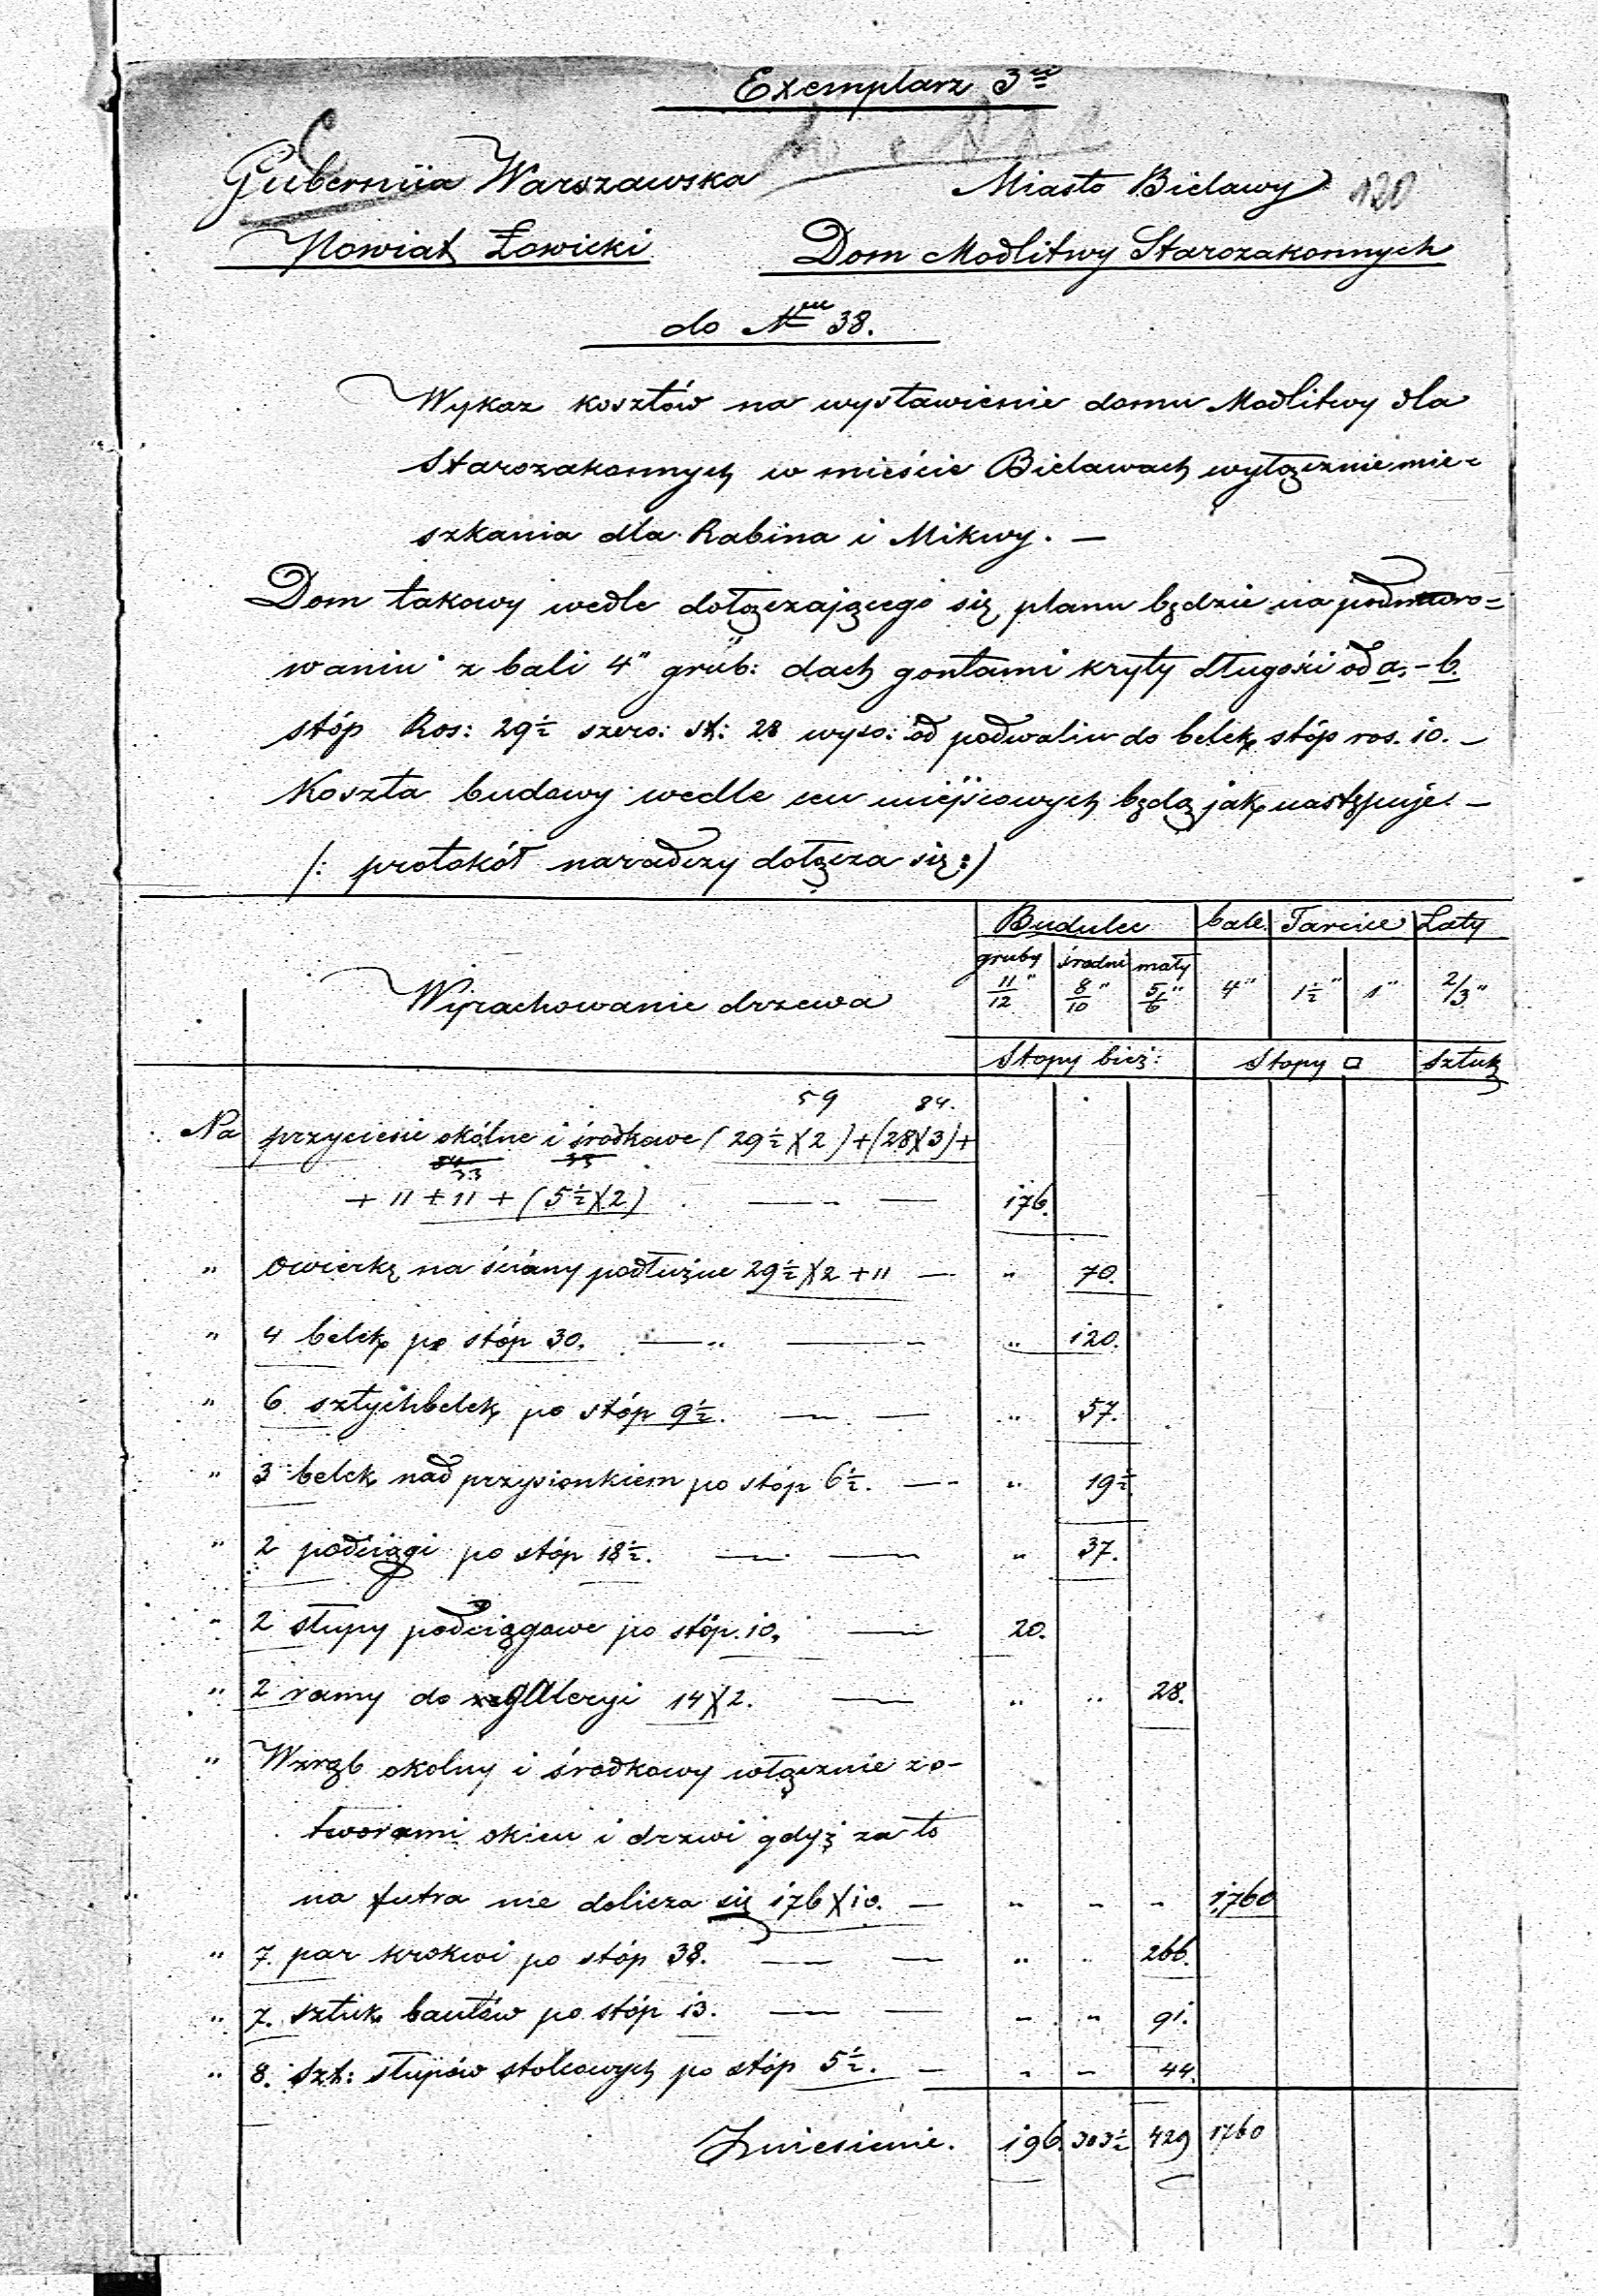 Exemplarz 3ci
Gubernija Warszawska
Miasto Bielawy 120
Powiat Łowicki
Dom Modlitwy Starozakonnych
do Nru 38.
Wykaz kosztów na wystawienie domu Modlitwy dla
Starozakonnych w mieście Bielawach wyłącznie mie=
szkania dla Rabina i Mikwy. —
Dom takowy wedle dołączającego się planu będzie na podmuro=
waniu z bali 4" grub: dach gontami kryty długości od a. – b.
stóp Ros: 29½ szero: st: 28 wyso: od podwalin do belek stóp ros. 10. —
Koszta budowy wedle cen miejscowych będą jak następuje: —
/: protokół naradczy dołącza się :/
Wyrachowanie drzewa
Budulec bale Tarcice Łaty
gruby średni mały
11/12" 8/10" 5/6" 4" 1½" 1" 2/3"
Stopy bież: Stopy □ Sztuk
59 84.
Na przyciesie okólne i środkowe (29½ X 2) + (28 X 3) +
33
+ 11 + 11 + (5½ X 2) 176.
" Oczierkę na ściany podłużne 29½ X 2 + 11 — " 70.
" 4 belek po stóp 30. — " — " 120.
" 6 sztychbelek po stóp 9½. — — " 57.
" 3 belek nad przysionkiem po stóp 6½. — " 19½
" 2 podciągi po stóp 18½. — — " 37.
" 2 słupy podciągowe po stóp. 10. — 20.
" 2 ramy do galeryi 14 X 2. — " " 28.
" Wzrąb okolny i środkowy włącznie z o-
tworami okien i drzwi gdyż za to
na futra nie dolicza się 176 X 10. — " " " 1760
" 7. par krokwi po stóp 38. — — " " 266.
" 7. sztuk bantów po stóp 13. — — " " 91.
" 8. Szt: słupów stolcowych po stóp 5½. — " " 44.
Zniesienie. 196. 303½ 429 1760